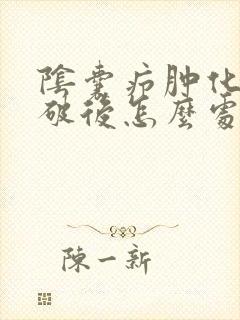 陰囊疖肿化
破後怎麼處
陳一新